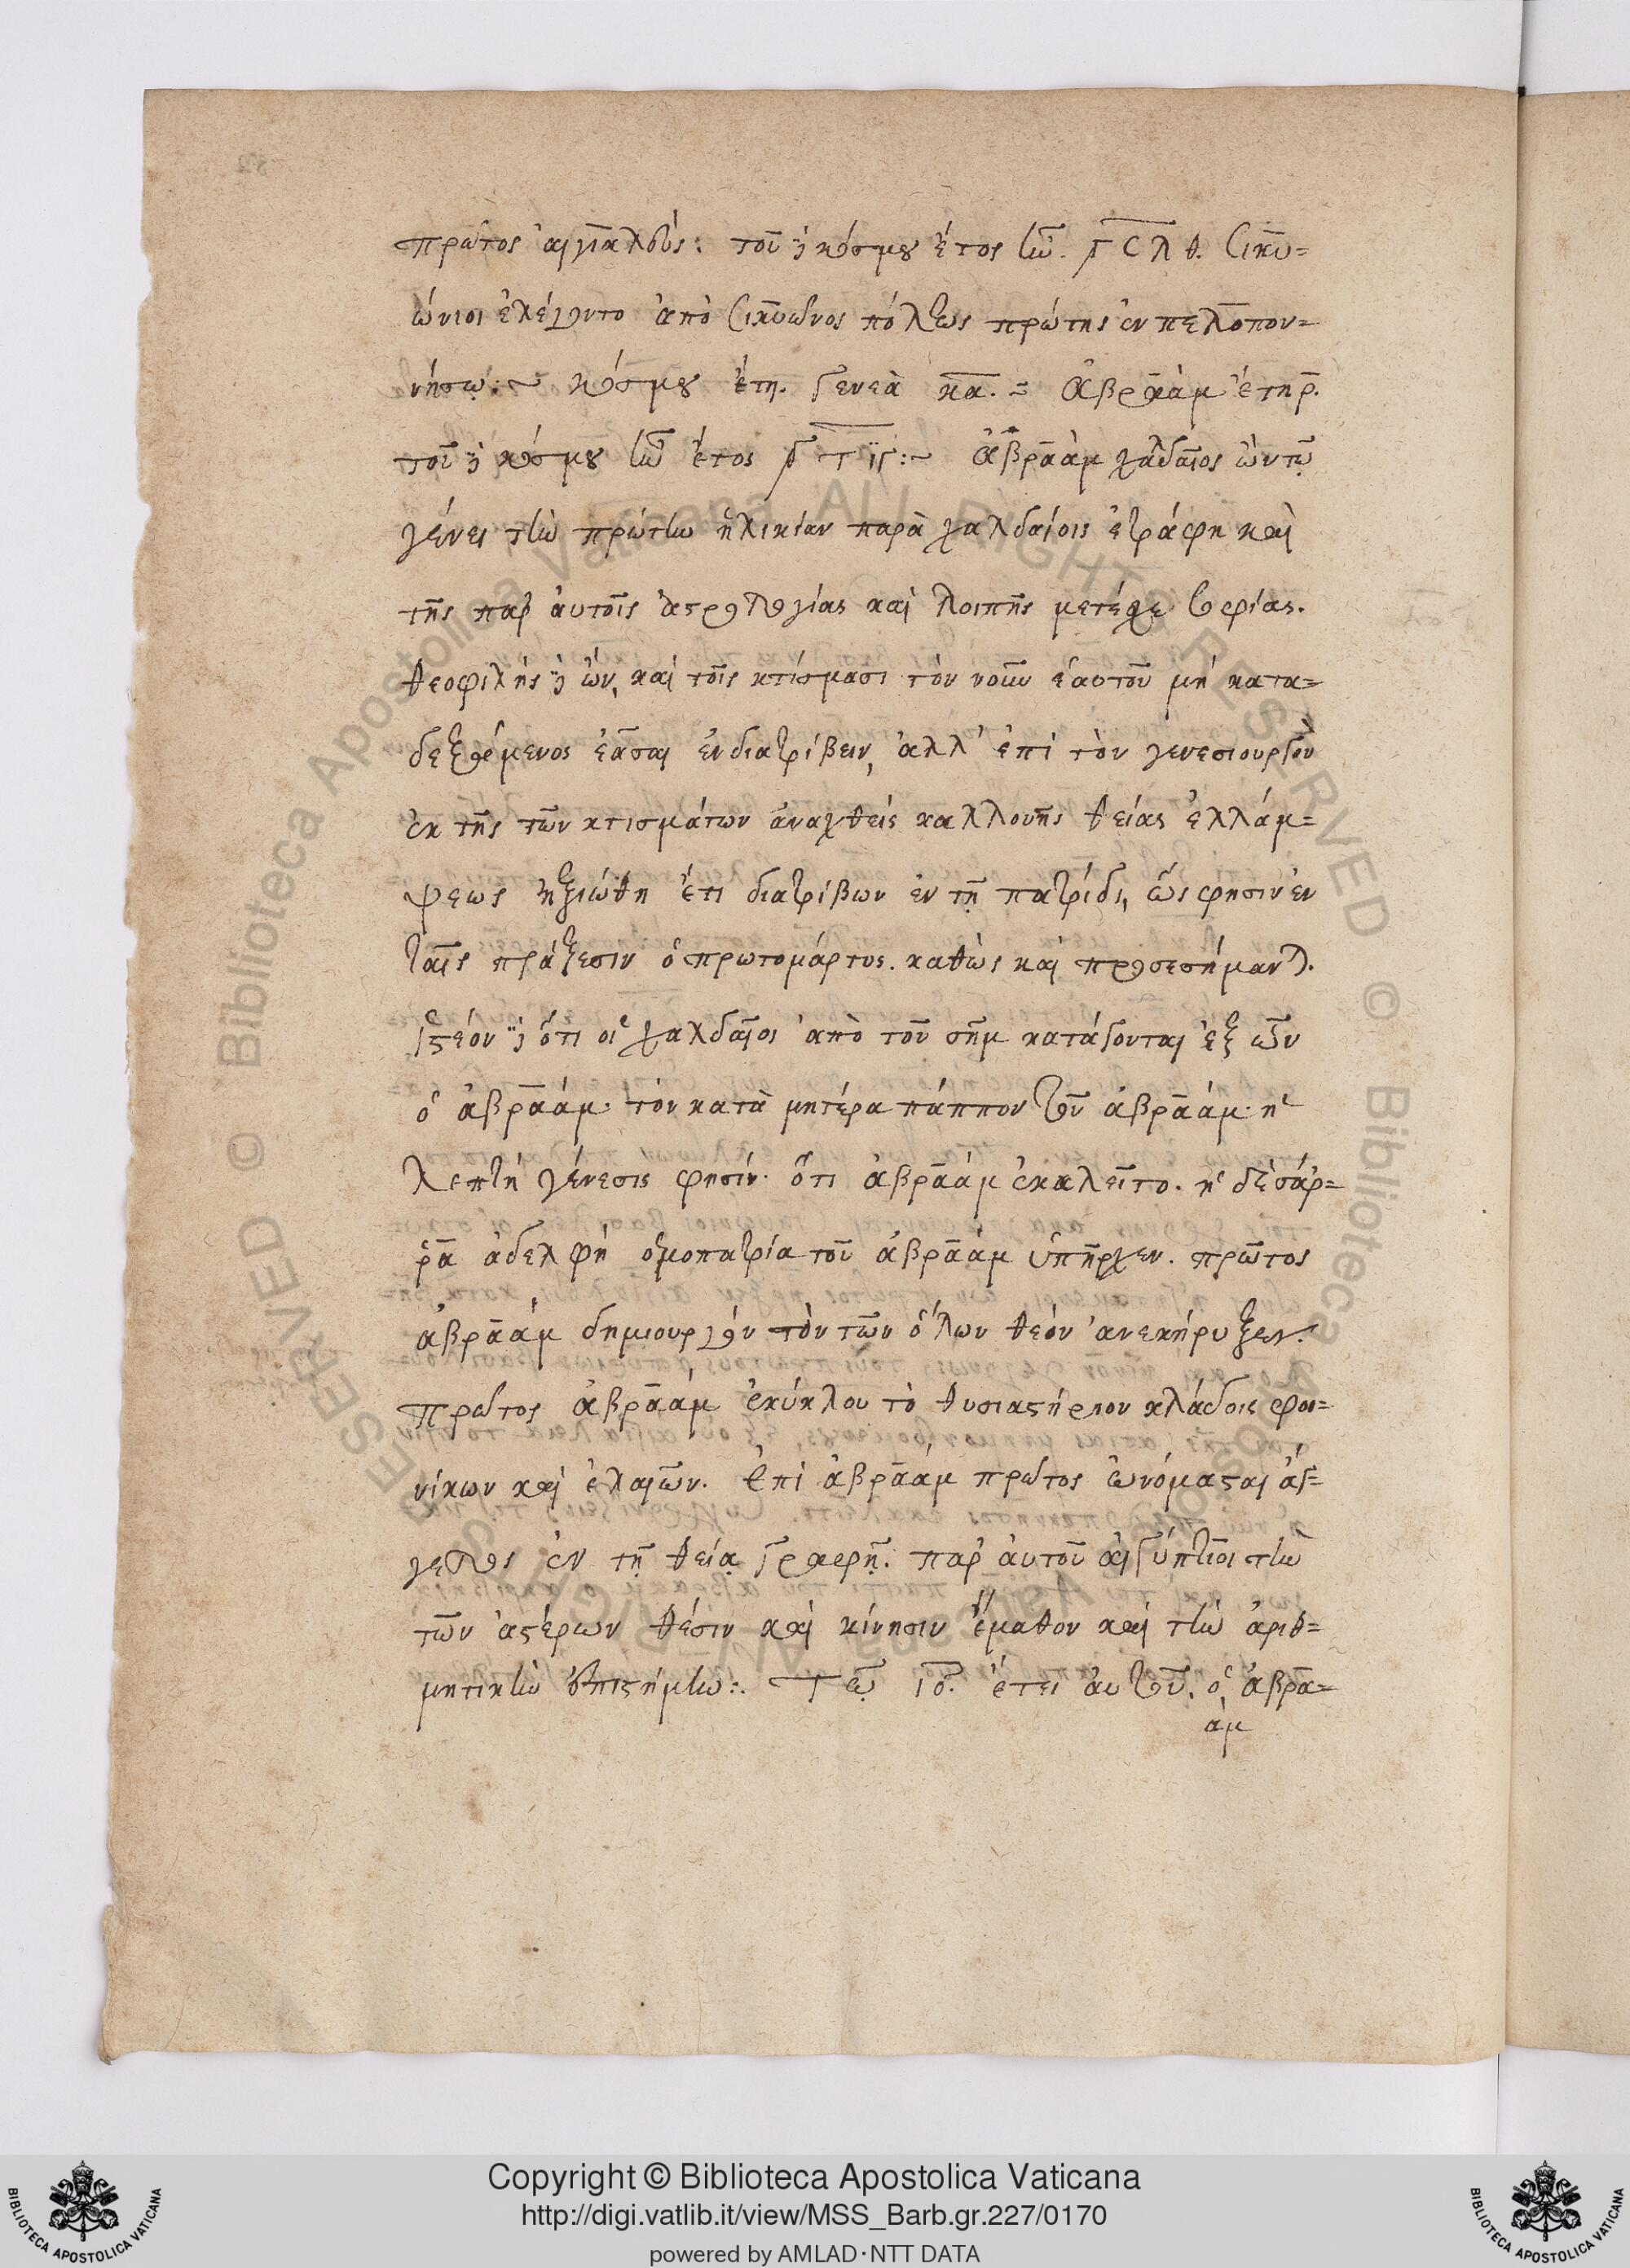 πρῶτος αἰγιαλεύς: τοῦ δὲ κόσμου ἔτος ἦν ͵γσλθ. Σικυ=
ώνιοι ἐλέγοντο ἀπὸ Σικυῶνος πόλεως πρώτης ἐν πελοπον=
νήσῳ:~ κόσμου ἔτη. Γενεὰ κα.= Ἀβραὰμ ἔτη ρ.
τοῦ δὲ κόσμου ἦν ἔτος ͵γτιγ:~ Ἀβραὰμ χαλδαῖος ὢν τῷ
γένει τὴν πρώτην ἡλικίαν παρὰ χαλδαίοις ἐτράφη καὶ
τῆς παρ' αὐτοῖς ἀστρολογίας καὶ λοιπῆς μετέσχε σοφίας.
θεοφιλὴς δὲ ὤν, καὶ τοῖς κτίσμασι τὸν νοῦν ἑαυτοῦ μὴ κατα=
δεξάμενος ἐᾶσαι ἐνδιατρίβειν, ἀλλ' ἐπὶ τὸν γενεσιουργὸν
ἐκ τῆς τῶν κτισμάτων ἀναχθεὶς καλλονῆς θείας ἐλλάμ=
ψεως ἠξιώθη ἔτι διατρίβων ἐν τῇ πατρίδι, ὥς φησιν ἐν
ταῖς πράξεσιν ὁ πρωτομάρτυς. καθὼς καὶ προσεσήμαν
ἰστέον δὲ ὅτι οἱ χαλδαῖοι ἀπὸ τοῦ σὴμ κατάγονται ἐξ ὧν
ὁ ἀβραάμ. τὸν κατὰ μητέρα πάππον τοῦ ἀβραάμ. ἡ
λεπτὴ γένεσις φησίν. ὅτι ἀβραάμ ἐκαλεῖτο. ἡ δὲ σάρ=
ρα ἀδελφὴ ὁμοπατρία τοῦ ἀβραάμ ὑπῆρχεν. πρῶτος
ἀβραάμ δημιουργὸν τὸν τῶν ὅλων θεὸν ἀνεκήρυξεν.
πρῶτος ἀβραάμ ἐκύκλου τὸ θυσιαστήριον κλάδοις φοι=
νίκων καὶ ἐλαιῶν. Ἐπὶ ἀβραάμ πρῶτος ὠνόμασται ἄγ=
γελος ἐν τῇ θείᾳ γραφῇ. παρ' αὐτοῦ αἰγύπτιοι τὴν
τῶν ἀστέρων θέσιν καὶ κίνησιν ἔμαθον καὶ τὴν ἀριθ=
μητικὴν ἐπιστήμην:. Τῷ ιδ. ἔτει αὐτοῦ. ὁ ἀβρα=
ὰμ
Copyright © Biblioteca Apostolica Vaticana
http://digi.vatlib.it/view/MSS_Barb.gr.227/0170
powered by AMLAD·NTT DATA